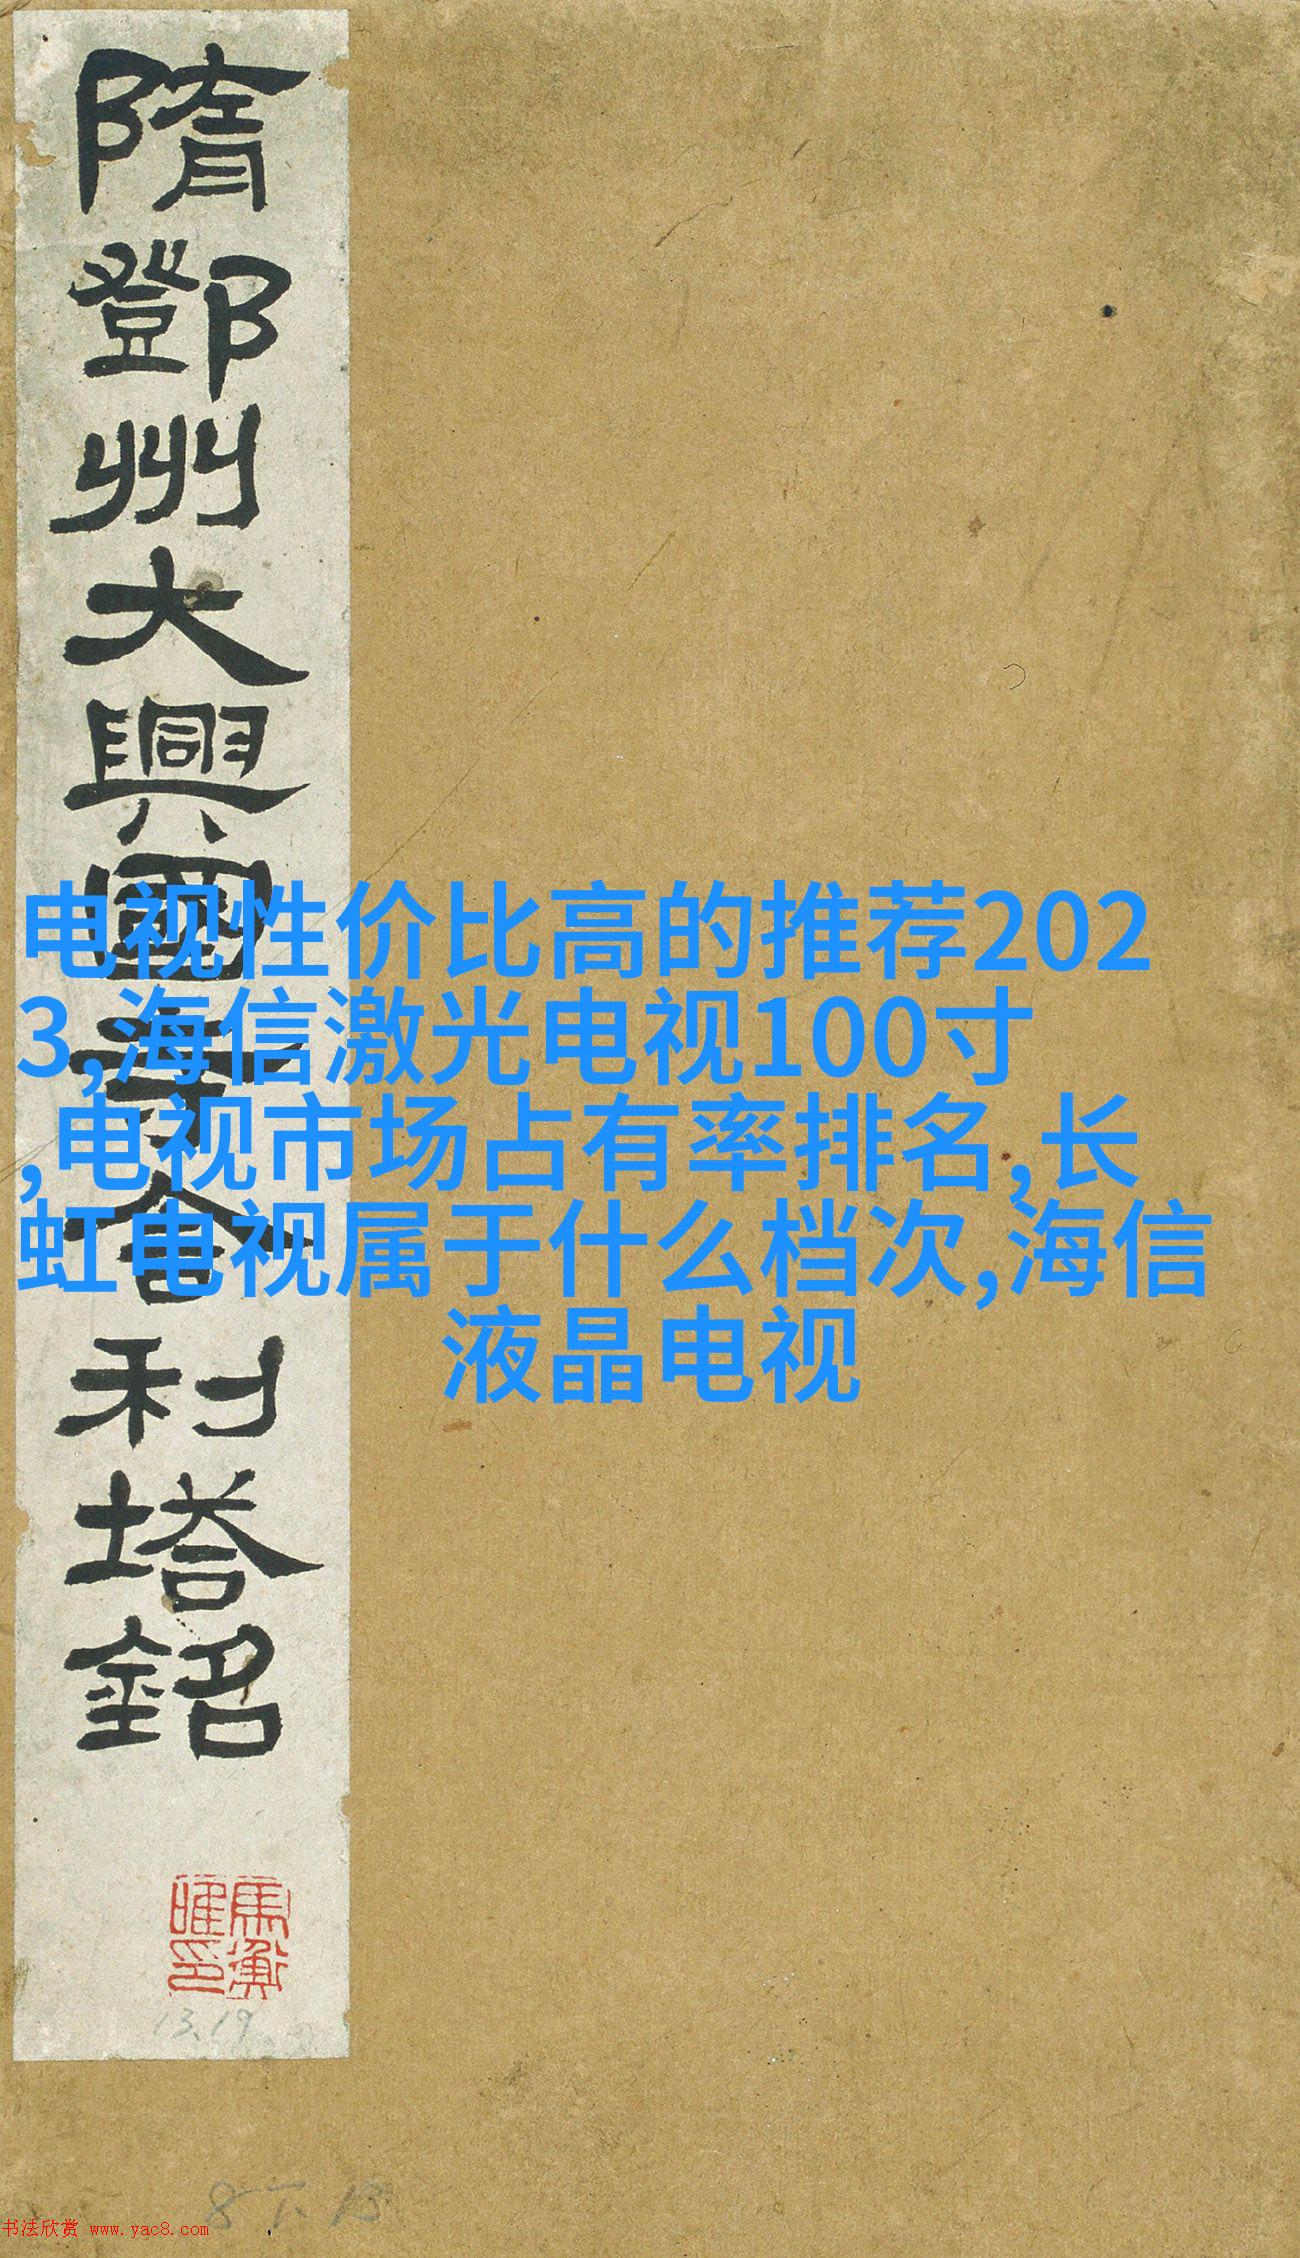 隋鄧州大興國寺舍利塔銘
电视性价比高的推荐202
3,海信激光电视100寸
,电视市场占有率排名,长
虹电视属于什么档次,海信
液晶电视
馬衡
暀印
13.19
8下13
书法欣赏 www.yac8.com